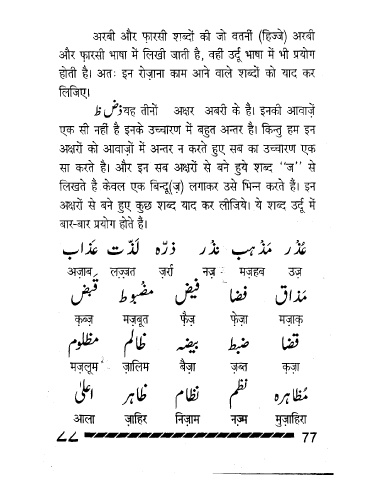 अरबी और फारसी शब्दों की जो वतनी (हिज्जे) अरबी
और फारसी भाषा में लिखी जाती है, वही उर्दू भाषा में भी प्रयोग
होती है। अतः इन रोज़ाना काम आने वाले शब्दों को याद कर
लिजिए।
ذ ض ظ यह तीनों अक्षर अबरी के है। इनकी आवाज़ें
एक सी नहीं है इनके उच्चारण में बहुत अन्तर है। किन्तु हम इन
अक्षरों को आवाजों में अन्तर न करते हुए सब का उच्चारण एक
सा करते है। और इन सब अक्षरों से बने हुये शब्द "ज" से
लिखते है केवल एक बिन्दू(ज़) लगाकर उसे भिन्न करते हैं। इन
अक्षरों से बने हुए कुछ शब्द याद कर लीजिये। ये शब्द उर्दू में
बार-बार प्रयोग होते है।
عُذر مَذہب نذر ذرّہ لذّت عذاب
अज़ाब लज़्ज़त ज़र्रा नज़्र मज़हब उज़्र
مَذاق فضا فیض مضبوط قبض
कब्ज़ मज़बूत फैज़ फेज़ा मज़ाक़
قضا ضبط بیضہ ظالم مظلوم
मज़लूम ज़ालिम बैज़ा ज़ब्त क़ज़ा
مُظاہرہ نظم نظام ظاہر اعلیٰ
आला ज़ाहिर निज़ाम नज़्म मुज़ाहिरा
۷۷ 77